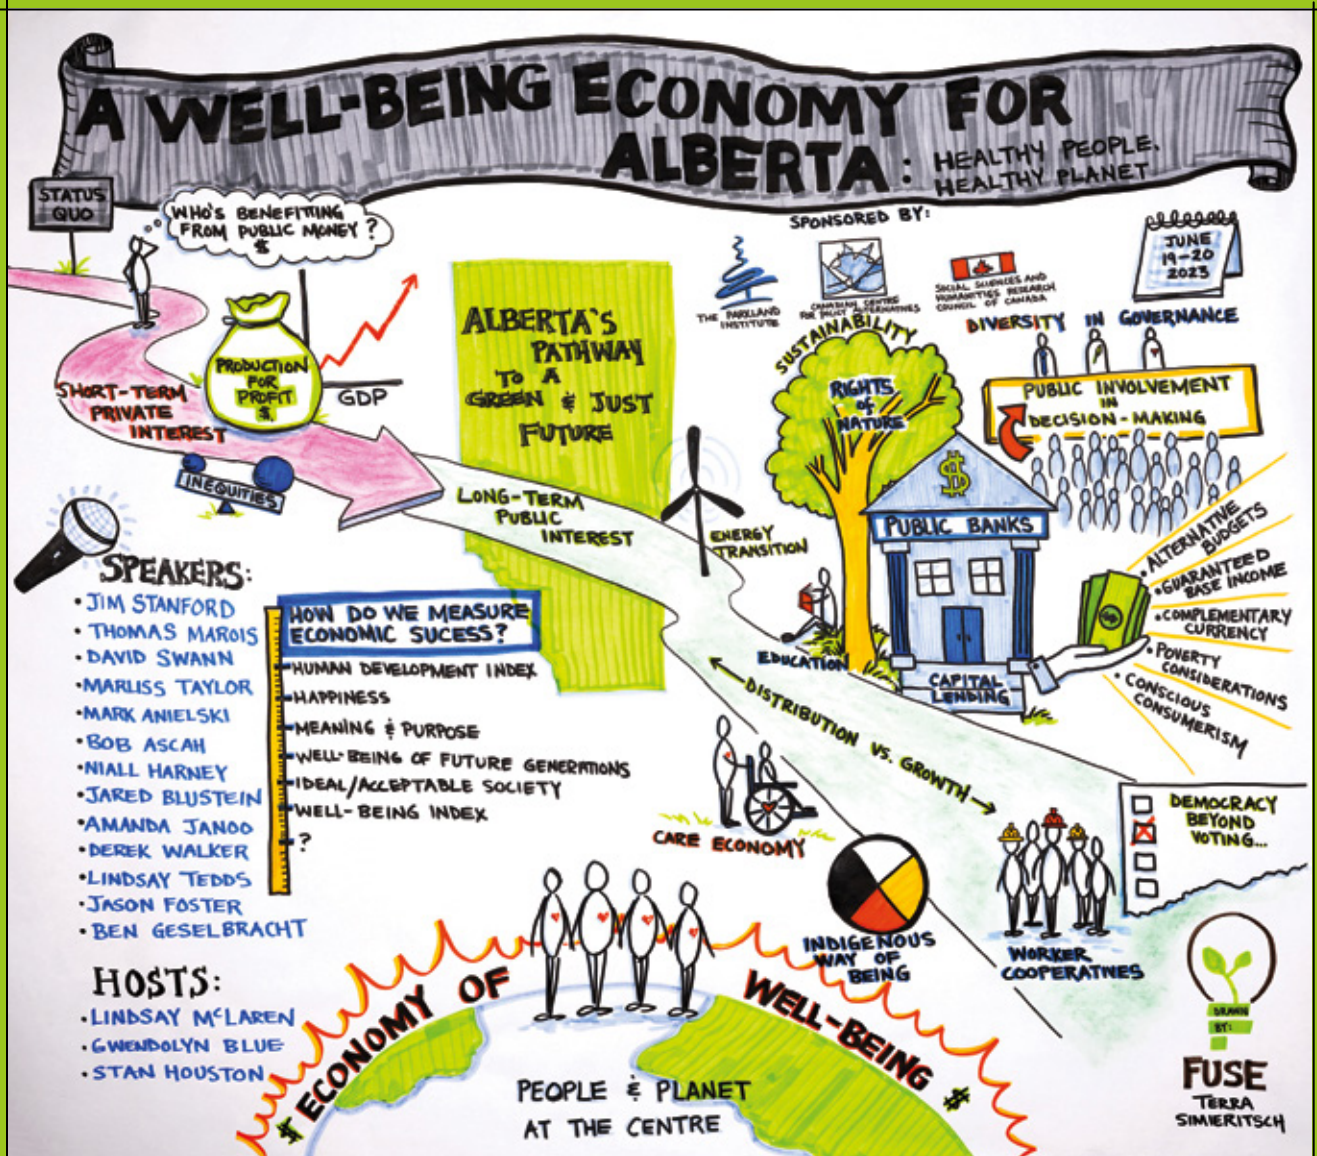 A WELL-BEING ECONOMY FOR
ALBERTA: HEALTHY PEOPLE,
HEALTHY PLANET
STATUS
QUO
WHO'S BENEFITTING
FROM PUBLIC MONEY?
$
SPONSORED BY:
THE PARKLAND
INSTITUTE
CANADIAN CENTRE
FOR POLICY ALTERNATIVES
SOCIAL SCIENCES AND
HUMANITIES RESEARCH
COUNCIL OF CANADA
JUNE
19-20
2023
PRODUCTION
FOR
PROFIT
$
GDP
SHORT-TERM
PRIVATE
INTEREST
INEQUITIES
ALBERTA'S
PATHWAY
TO A
GREEN & JUST
FUTURE
LONG-TERM
PUBLIC
INTEREST
ENERGY
TRANSITION
SUSTAINABILITY
RIGHTS
of
NATURE
DIVERSITY IN GOVERNANCE
PUBLIC INVOLVEMENT
IN
DECISION-MAKING
$
PUBLIC BANKS
CAPITAL
LENDING
EDUCATION
$
• ALTERNATIVE
BUDGETS
• GUARANTEED
BASE INCOME
• COMPLEMENTARY
CURRENCY
• POVERTY
CONSIDERATIONS
• CONSCIOUS
CONSUMERISM
SPEAKERS:
• JIM STANFORD
• THOMAS MAROIS
• DAVID SWANN
• MARLISS TAYLOR
• MARK ANIELSKI
• BOB ASCAH
• NIALL HARNEY
• JARED BLUSTEIN
• AMANDA JANOO
• DEREK WALKER
• LINDSAY TEDDS
• JASON FOSTER
• BEN GESELBRACHT
HOSTS:
• LINDSAY McLAREN
• GWENDOLYN BLUE
• STAN HOUSTON
HOW DO WE MEASURE
ECONOMIC SUCESS?
HUMAN DEVELOPMENT INDEX
HAPPINESS
MEANING & PURPOSE
WELL-BEING OF FUTURE GENERATIONS
IDEAL/ACCEPTABLE SOCIETY
WELL-BEING INDEX
?
DISTRIBUTION VS. GROWTH
CARE ECONOMY
INDIGENOUS
WAY OF
BEING
WORKER
COOPERATIVES
DEMOCRACY
BEYOND
VOTING...
$ ECONOMY OF WELL-BEING $
PEOPLE & PLANET
AT THE CENTRE
DRAWN
BY:
FUSE
TERRA
SIMIERITSCH